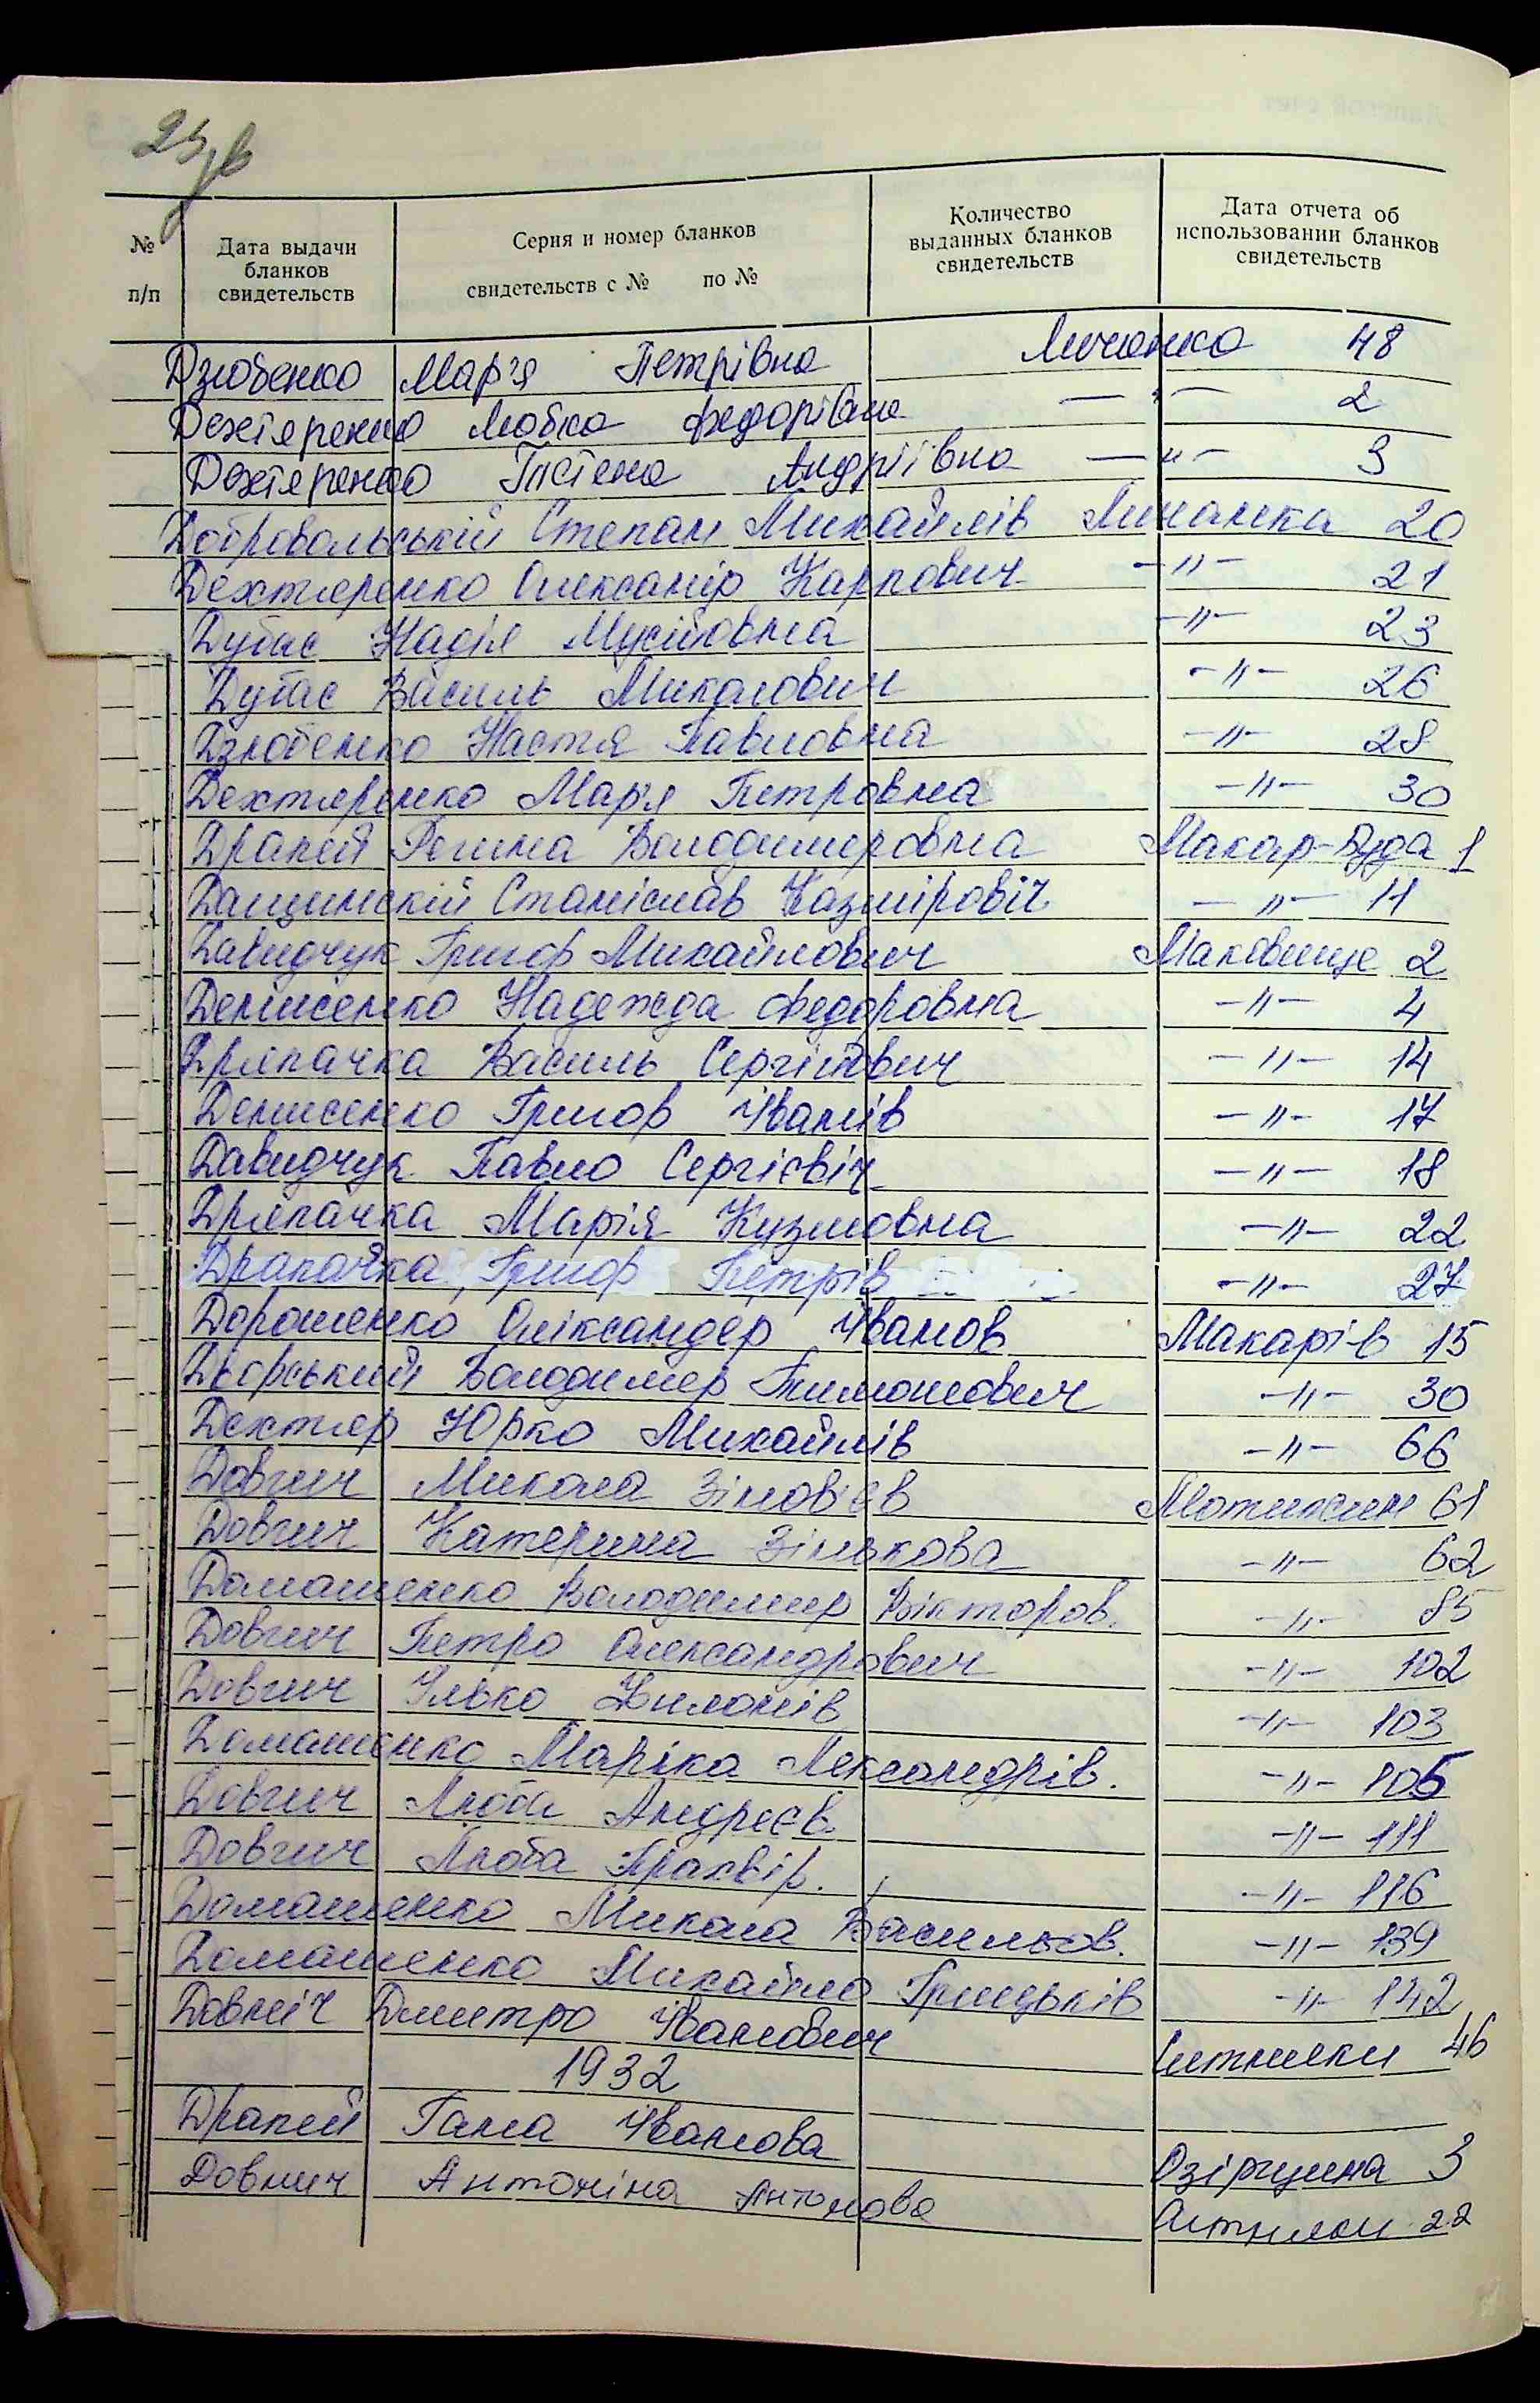 23 зв
№ п/п
Дата выдачи бланков свидетельств
Серия и номер бланков свидетельств с № по №
Количество выданных бланков свидетельств
Дата отчета об использовании бланков свидетельств
Дзюбенко Мар'я Петрівна 48
Дехтяренко Любка Федорівна —"— 2
Дехтяренко Андріївна —"— 3
Добровольській Степан Михайлів 20
Дехтяренко Олександр Карпович —"— 21
Дубас Надія Мусійовна —"— 23
Дубас Василь Миколович —"— 26
Дзюбенко Настя Павловна —"— 28
Дехтяренко Мар'я Петровна —"— 30
Драпей Регина Володимировна Макар-Буда 1
Дащинскій Станіслав Казміровіч —"— 11
Давидчук Григор Михайлович Маковище 2
Денисенко Надежда Федоровна —"— 4
Дряпачка Василь Сергійович —"— 14
Денисенко Григор Іванів —"— 17
Давидчук Павло Сергієвіч —"— 18
Дряпачка Марія Кузмовна —"— 22
Драпачка Григор Петрів —"— 27
Дорошенко Оліксандер Іванов Макарів 15
Дворський Володимер Тимошович —"— 30
Дехтяр Юрко Михайлів —"— 66
Довгич Микола Зінов'єв Мотижин 61
Довгич Катерина Зінькова —"— 62
Домашенко Володимир Вікторов. —"— 85
Довгич Петро Олександрович —"— 102
Довгич Ілько —"— 103
Домашенко Маріка Лександрів. —"— 105
Довгич Люба Андреєв. —"— 111
Довгич Люба —"— 116
Домашенко Микола Васильов. —"— 139
Домашенко Михайло Грицьків —"— 142
Довгіч Дмитро Іванович Ситняки 46
1932
Драпей Ганна Іванова Озірщина 3
Довгич Антоніна Антонова Ситняки 22